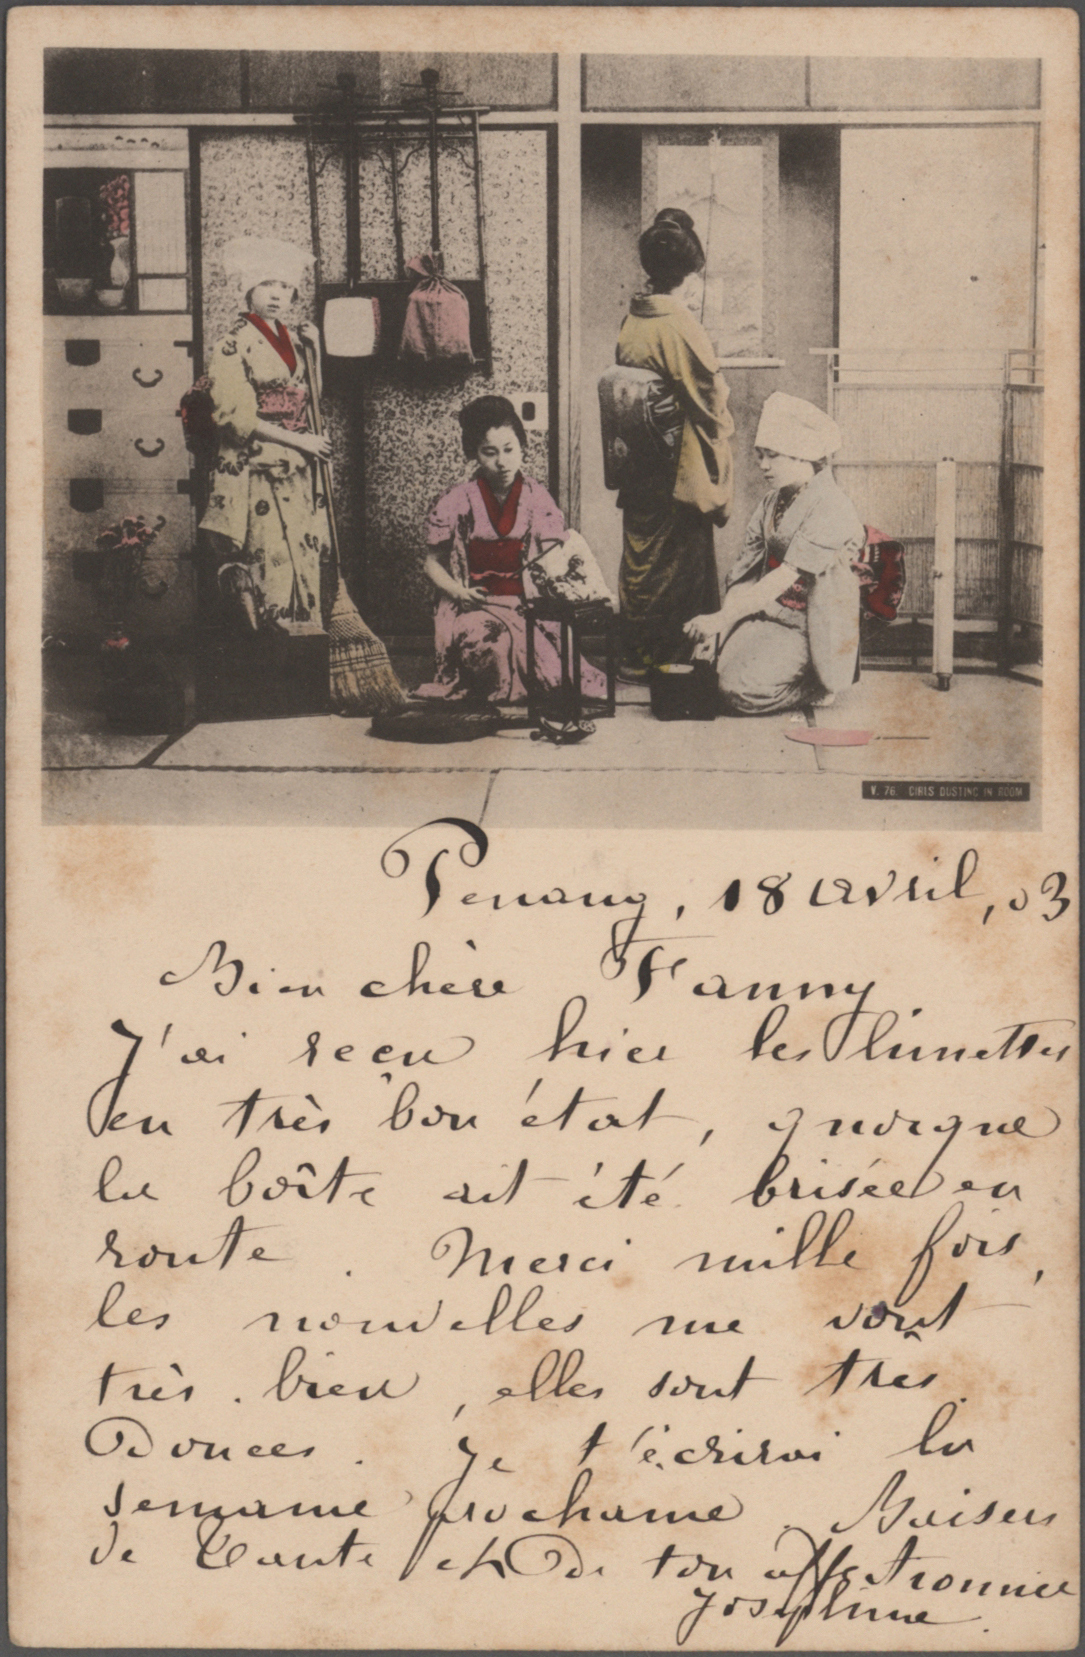 V. 76. GIRLS DUSTING IN ROOM
Penang, 18 avril, 03
Bien chère Fanny
J'ai reçu hier les lunettes
en très bon état, quoique
la boîte ait été brisée en
route. Merci mille fois,
les nouvelles me vont
très bien, elles sont très
douces. Je t'écrirai la
semaine prochaine. Baisers
de Tante et de ton affectionnée
Joséphine.